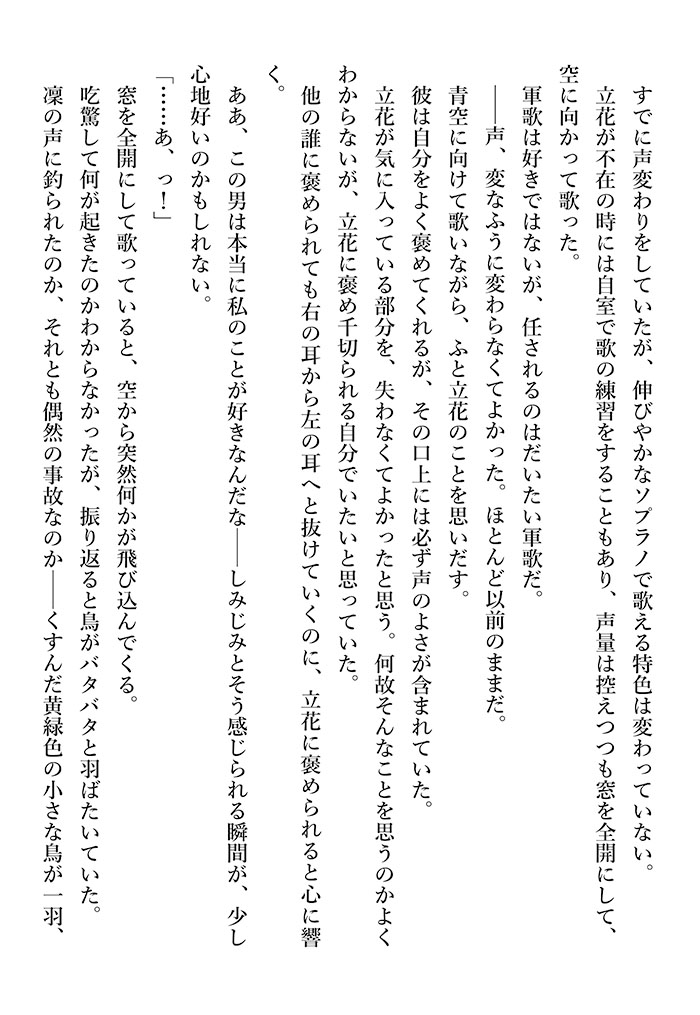 すでに声変わりをしていたが、伸びやかなソプラノで歌える特色は変わっていない。
立花が不在の時には自室で歌の練習をすることもあり、声量は控えつつも窓を全開にして、
空に向かって歌った。
軍歌は好きではないが、任されるのはだいたい軍歌だ。
――声、変なふうに変わらなくてよかった。ほとんど以前のままだ。
青空に向けて歌いながら、ふと立花のことを思いだす。
彼は自分をよく褒めてくれるが、その口上には必ず声のよさが含まれていた。
立花が気に入っている部分を、失わなくてよかったと思う。何故そんなことを思うのかよく
わからないが、立花に褒め千切られる自分でいたいと思っていた。
他の誰に褒められても右の耳から左の耳へと抜けていくのに、立花に褒められると心に響
く。
ああ、この男は本当に私のことが好きなんだな――しみじみとそう感じられる瞬間が、少し
心地好いのかもしれない。
「……あ、っ！」
窓を全開にして歌っていると、空から突然何かが飛び込んでくる。
吃驚して何が起きたのかわからなかったが、振り返ると鳥がバタバタと羽ばたいていた。
凜の声に釣られたのか、それとも偶然の事故なのか――くすんだ黄緑色の小さな鳥が一羽、